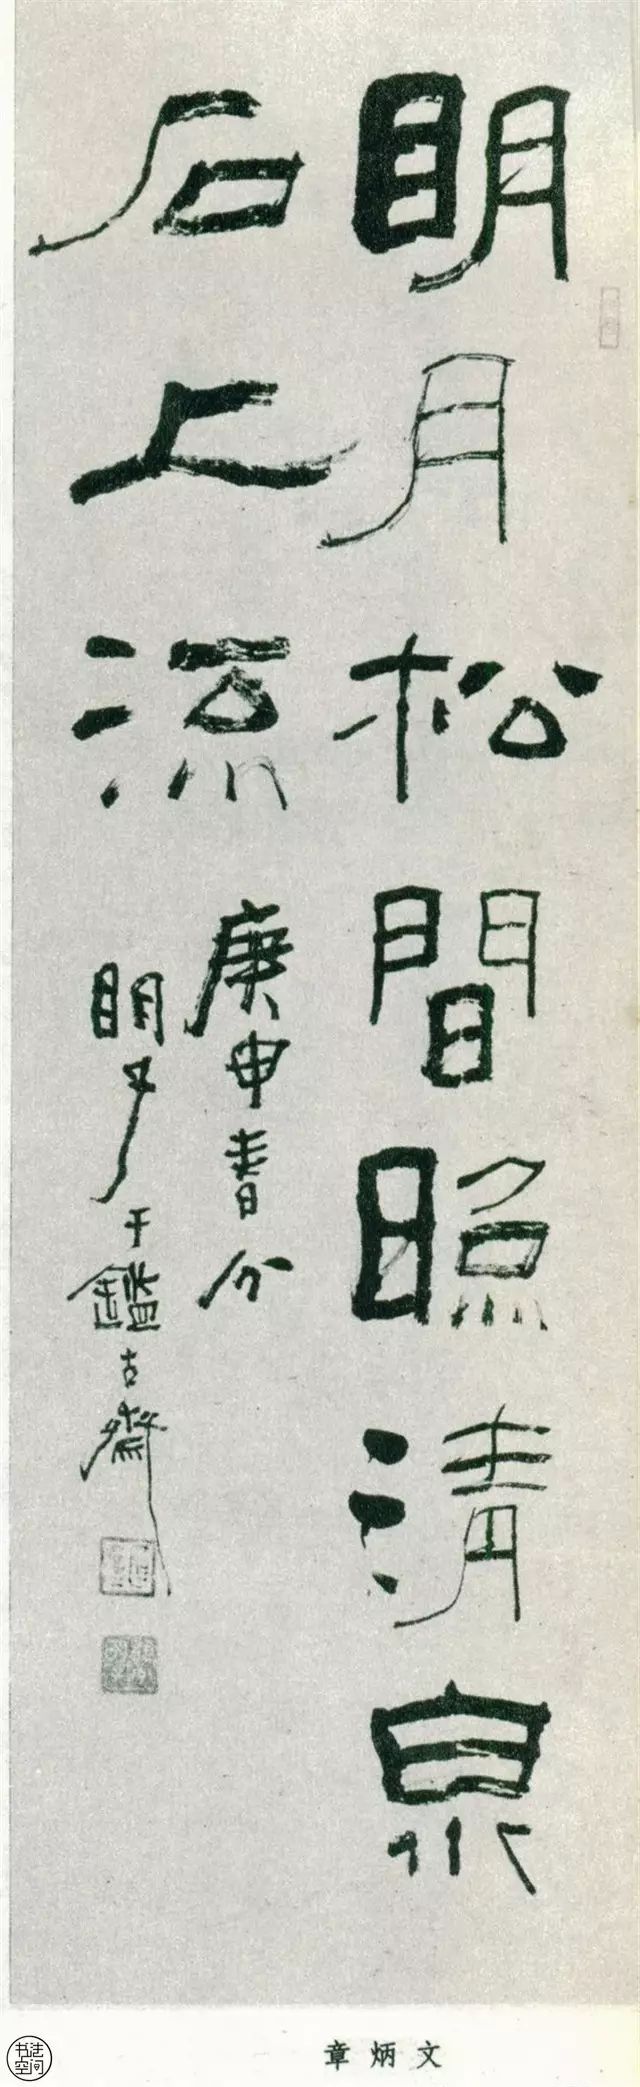 眀月松間照清泉
石上流
庚申春分
眀于鑑古齋
章炳文
书法
空间